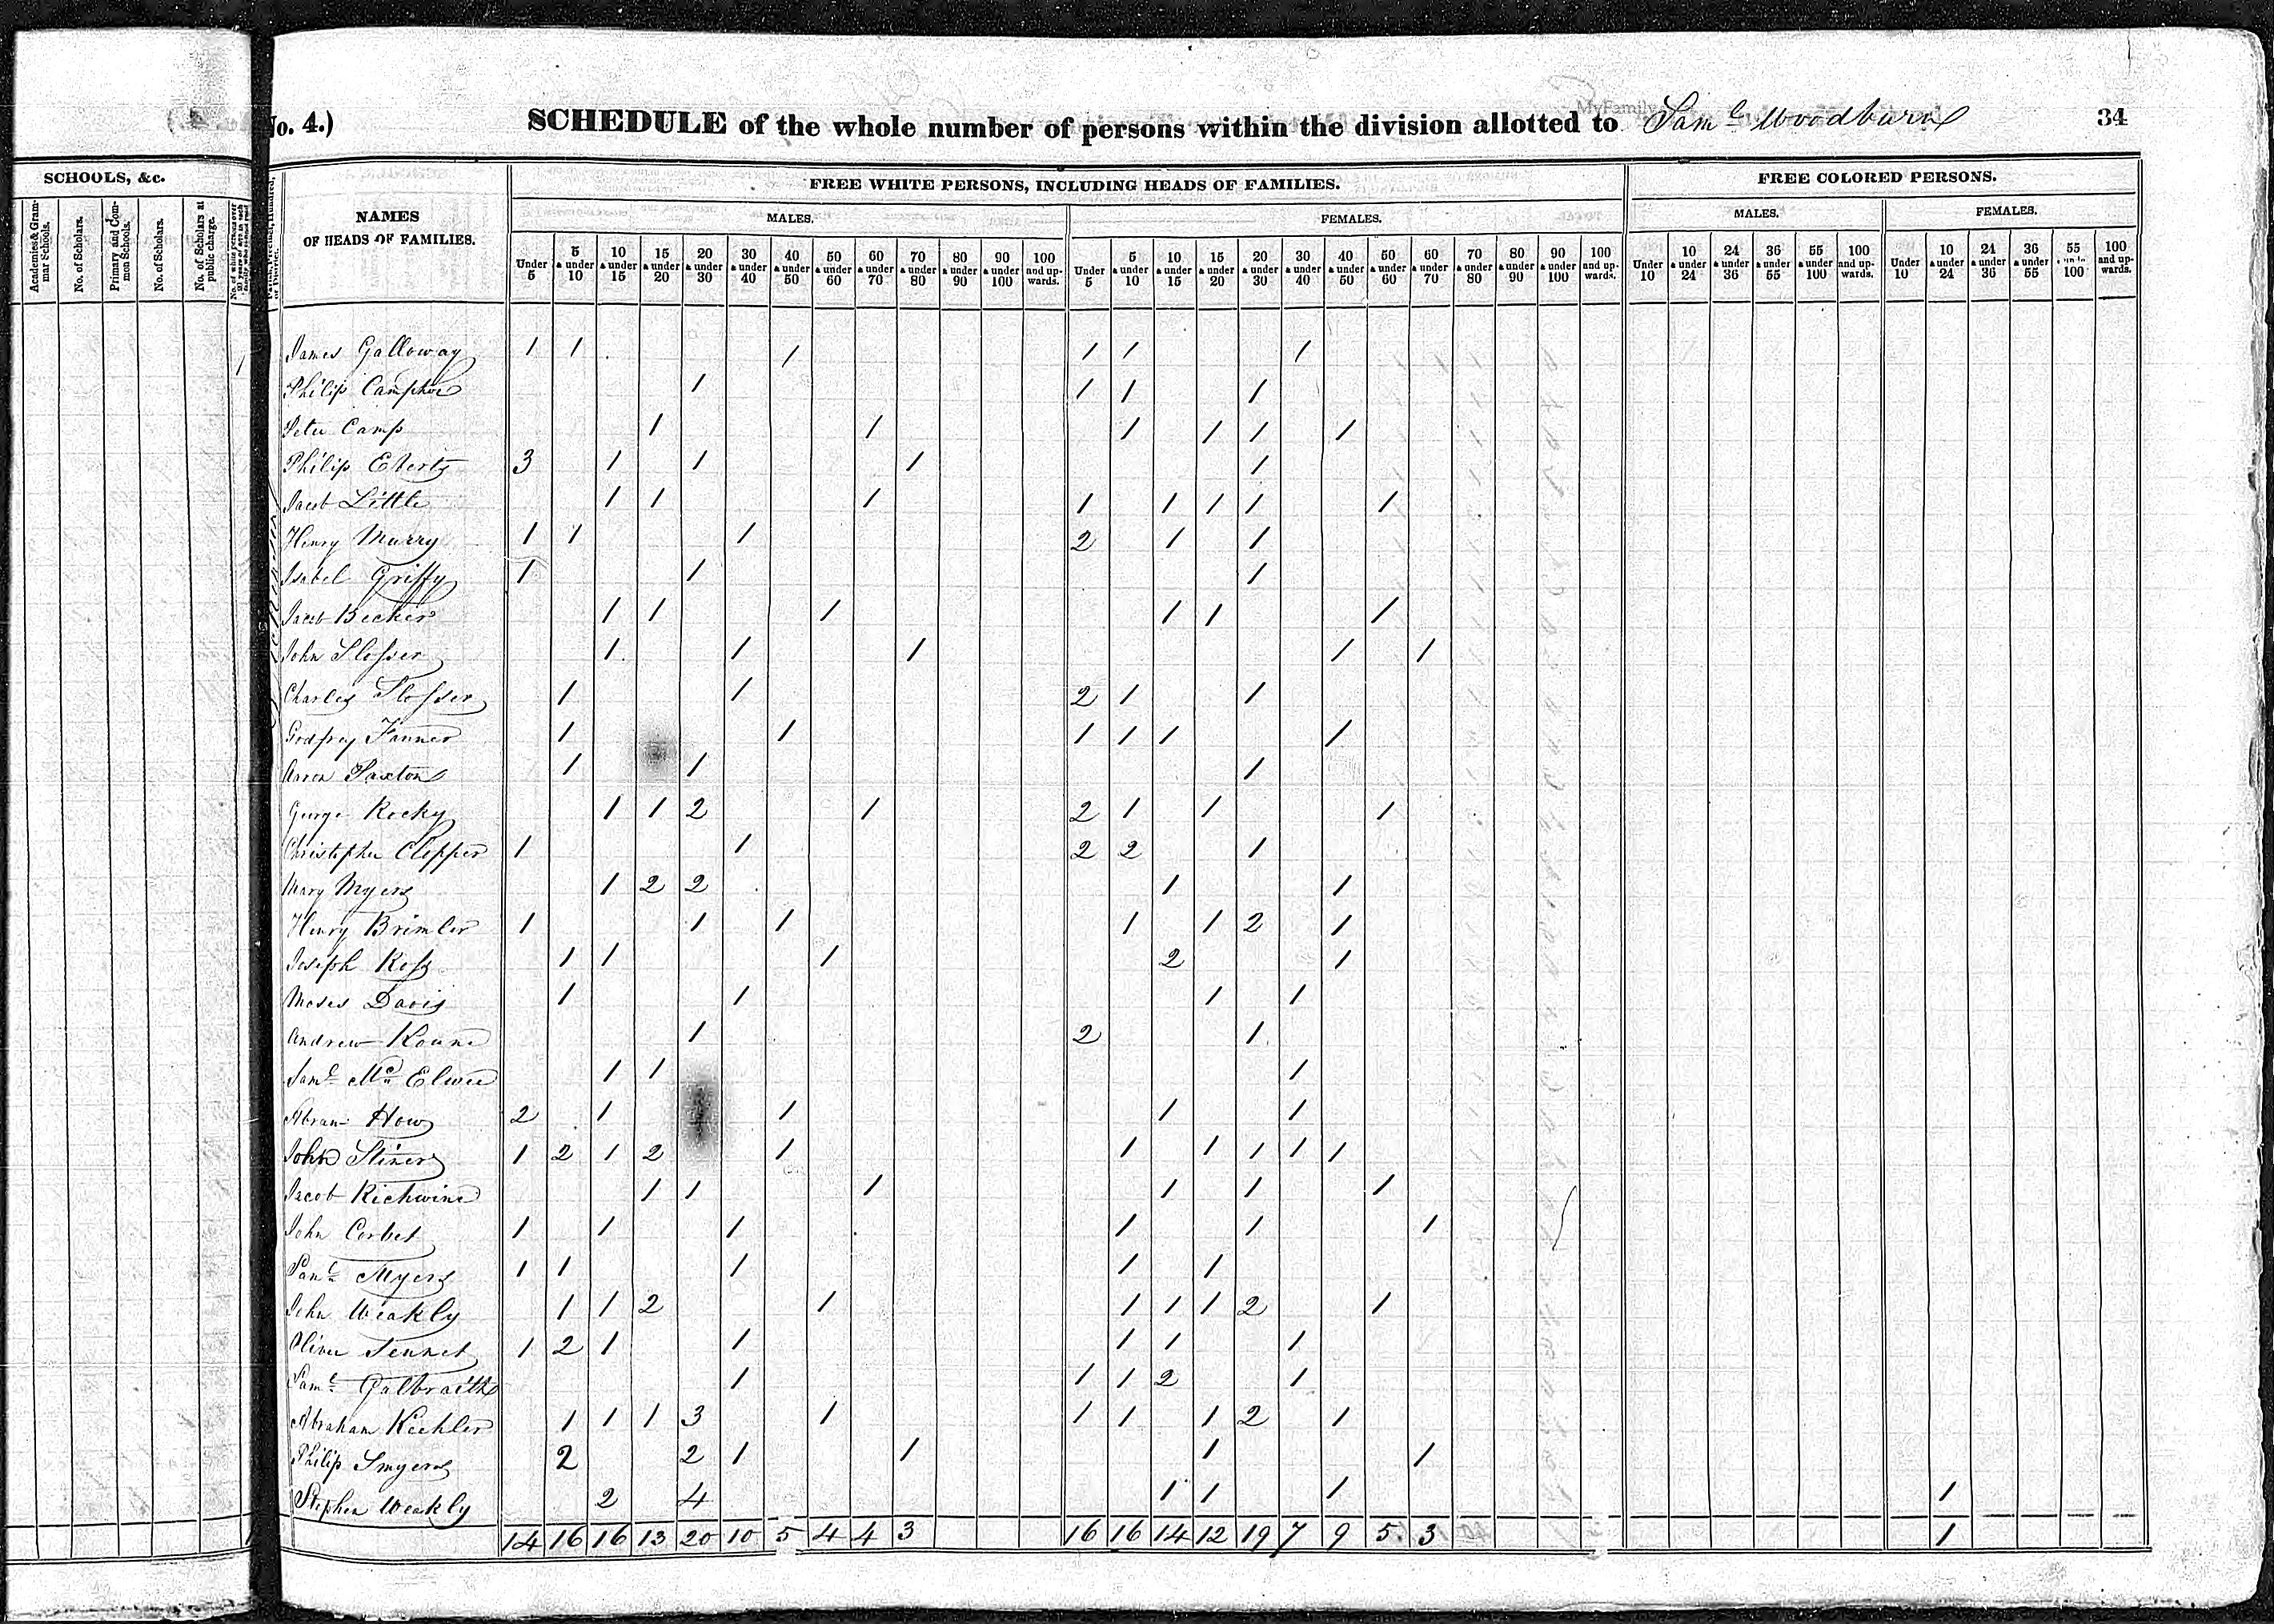 SCHOOLS, &c.
Academies & Grammar Schools.
No. of Scholars.
Primary and Common Schools.
No. of Scholars.
No. of Scholars at public charge.
1
No. 4.) SCHEDULE of the whole number of persons within the division allotted to Saml Woodburn 34
MyFamily
NAMES OF HEADS OF FAMILIES.
FREE WHITE PERSONS, INCLUDING HEADS OF FAMILIES. FREE COLORED PERSONS.
MALES. FEMALES. MALES. FEMALES.
Under 5 5 & under 10 10 & under 15 15 & under 20 20 & under 30 30 & under 40 40 & under 50 50 & under 60 60 & under 70 70 & under 80 80 & under 90 90 & under 100 100 and upwards. Under 5 5 & under 10 10 & under 15 15 & under 20 20 & under 30 30 & under 40 40 & under 50 50 & under 60 60 & under 70 70 & under 80 80 & under 90 90 & under 100 100 and upwards. Under 10 10 & under 24 24 & under 36 36 & under 55 55 & under 100 100 and upwards. Under 10 10 & under 24 24 & under 36 36 & under 55 55 & under 100 100 and upwards.
James Galloway 1 1 1 1 1 1
Philip Camphor 1 1 1 1
Peter Camp 1 1 1 1 1 1
Philip Eberts 3 1 1 1 1
Jacob Little 1 1 1 1 1 1 1 1
Henry Murry 1 1 1 2 1 1
Isabel Griffy 1 1 1
Jacob Becker 1 1 1 1 1 1
John Slosser 1 1 1 1 1
Charles Slosser 1 1 2 1 1
Godfrey Fanner 1 1 1 1 1 1
Aaron Saxton 1 1 1
George Rocky 1 1 2 1 2 1 1 1
Christopher Clepper 1 1 2 2 1
Mary Myers 1 2 2 1 1
Henry Brimler 1 1 1 1 1 2 1
Joseph Ross 1 1 1 2 1
Moses Davis 1 1 1 1
Andrew Koune 1 2 1
Saml Mc Elwee 1 1 1
Abram How 2 1 1 1 1
John Stiner 1 2 1 2 1 1 1 1 1 1
Jacob Richwine 1 1 1 1 1 1
John Corbet 1 1 1 1 1 1
Saml Myers 1 1 1 1 1
John Weakly 1 1 2 1 1 1 1 2 1
Oliver Tennet 1 2 1 1 1 1 1
Saml Galbraith 1 1 1 2 1
Abraham Keehler 1 1 1 3 1 1 1 1 2 1
Philip Smyers 2 2 1 1 1 1
Stephen Weakly 2 4 1 1 1 1
14 16 16 13 20 10 5 4 4 3 16 16 14 12 19 7 9 5 3 1